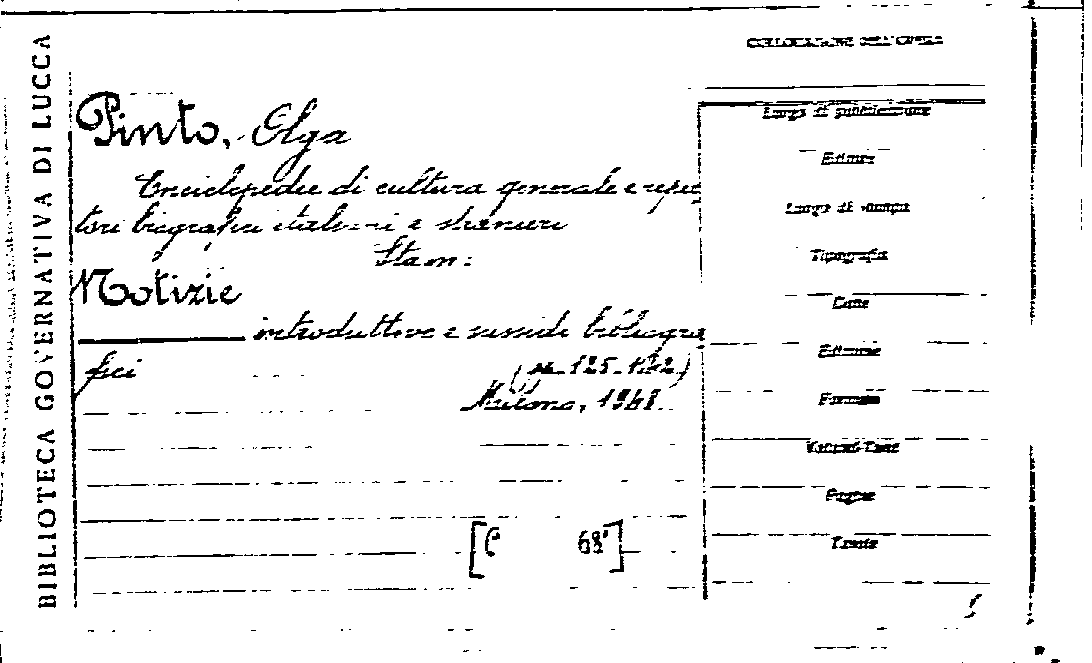 BIBLIOTECA GOVERNATIVA DI LUCCA
COLLOCAZIONE DELL'OPERA
Pinto, Olga
Enciclopedie di cultura generale e reper
tori biografici italiani e stranieri
Stam:
Notizie
introduttive e sussidi bibliogra
fici
Milano, 1968.
[C 68']
Luogo di pubblicazione
Editore
Luogo di stampa
Tipografia
Data
Edizione
Formato
Volumi-Tomi
Pagine
Tavole